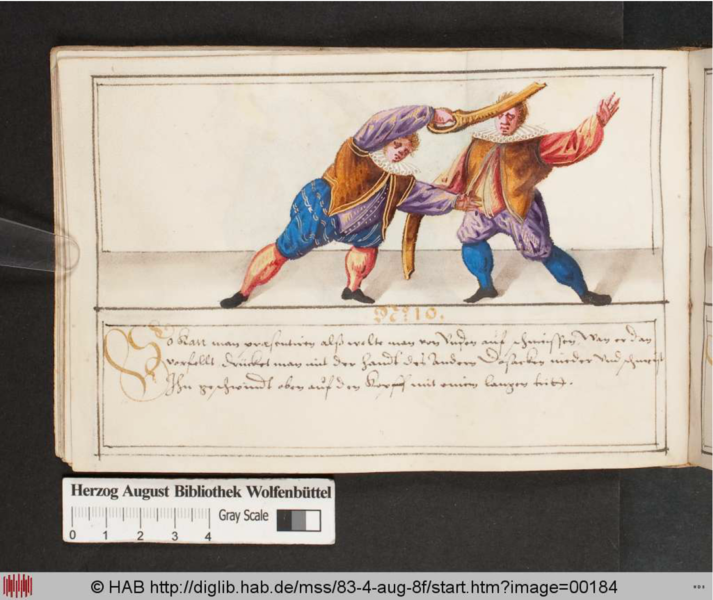 No: 10.
So kan man præsentiren alß wolte man von Unden auf schmeissen, Wan er dan
verfellt drücket man mit der Handt des Andern Dusacken nieder Und schmeist
Ihn geschwindt oben auf den Kopff mit einen langen tritt.
Herzog August Bibliothek Wolfenbüttel
Gray Scale
0 1 2 3 4
© HAB http://diglib.hab.de/mss/83-4-aug-8f/start.htm?image=00184